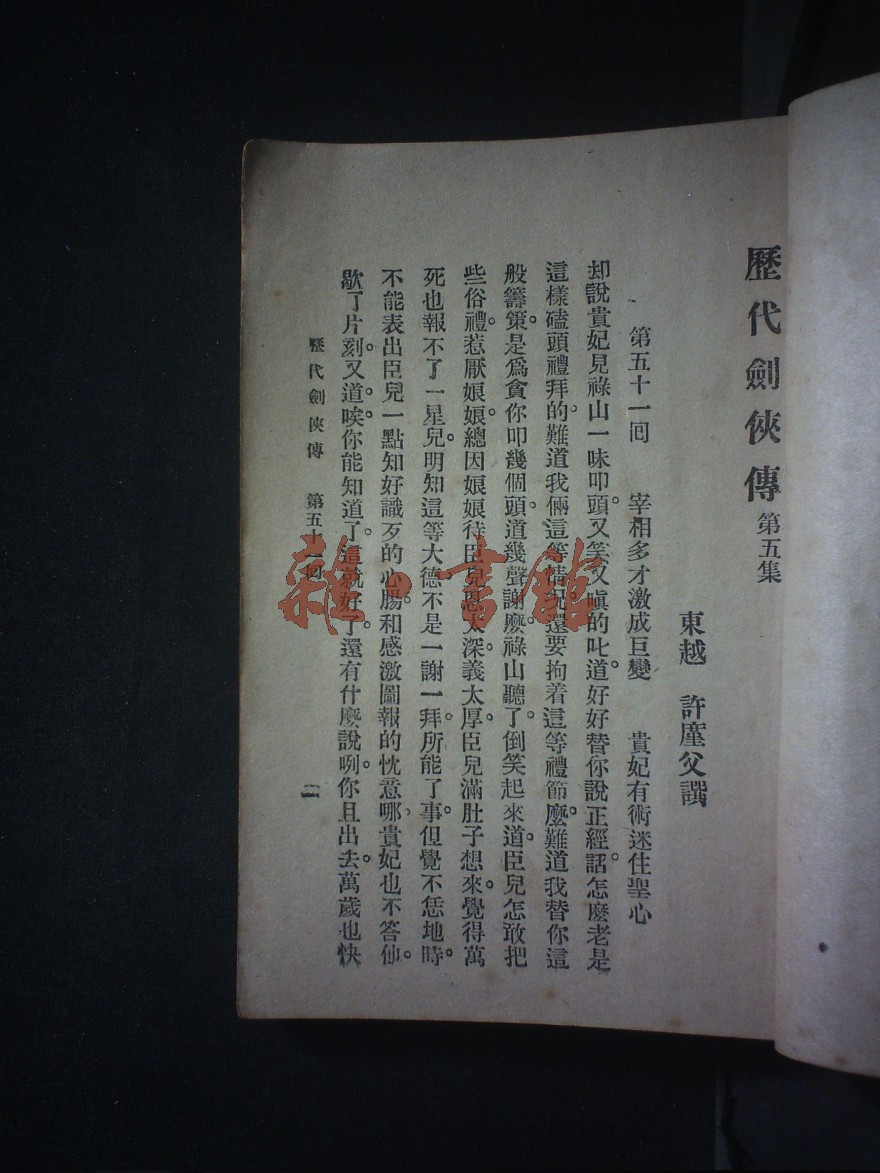 歷代劍俠傳第五集
東越 許廑父譔
第五十一囘 宰相多才激成巨變 貴妃有術迷住聖心
却說貴妃見祿山一味叩頭。又笑又嗔的叱道。好好替你說正經話。怎麼老是
這樣磕頭禮拜的。難道我倆這等情況。還要拘着這等禮節麼。難道我替你這
般籌策。是爲貪你叩幾個頭。道幾聲謝麼。祿山聽了。倒笑起來道。臣兒怎敢把
些俗禮。惹厭娘娘。總因娘娘待臣兒恩太深。義太厚。臣兒滿肚子想來。覺得萬
死也報不了一星兒。明知這等大德。不是一謝一拜。所能了事。但覺不恁地時。
不能表出臣兒一點知好識歹的心腸。和感激圖報的忱意哪。貴妃也不答他。
歇了片刻。又道。唉。你能知道了。這就好了。還有什麼說咧。你且出去。萬歲也快
歷代劍俠傳 第五十一囘 一
雜·書館